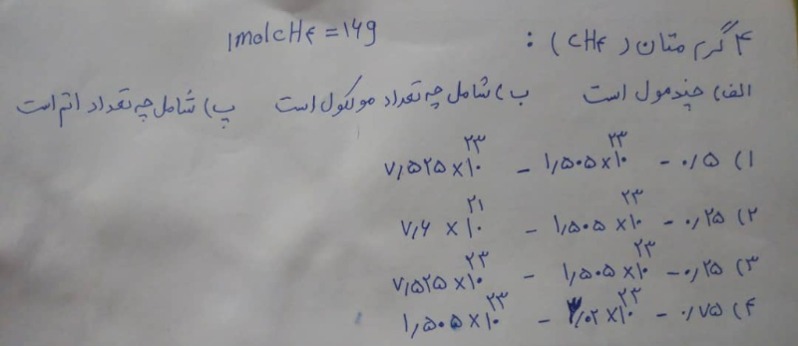 ۴ گرم متان (CH۴) : 1molCH۴ = ۱۶g
الف) چندمول است ب) شامل چه تعداد مولکول است پ) شامل چه تعداد اتم است
۱) ۰/۵ - ۱٫۵۰۵×۱۰^۲۳ - ۷٫۵۲۵×۱۰^۲۳
۲) ۰٫۲۵ - ۱٫۵۰۵×۱۰^۲۳ - ۷٫۶×۱۰^۲۱
۳) ۰٫۲۵ - ۱٫۵۰۵×۱۰^۲۳ - ۷٫۵۲۵×۱۰^۲۳
۴) ۰٫۷۵ - ۳٫۰۲×۱۰^۲۳ - ۱٫۵۰۵×۱۰^۲۳